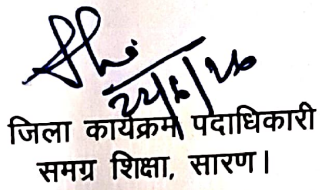 जिला कार्यक्रम पदाधिकारी
समग्र शिक्षा, सारण।